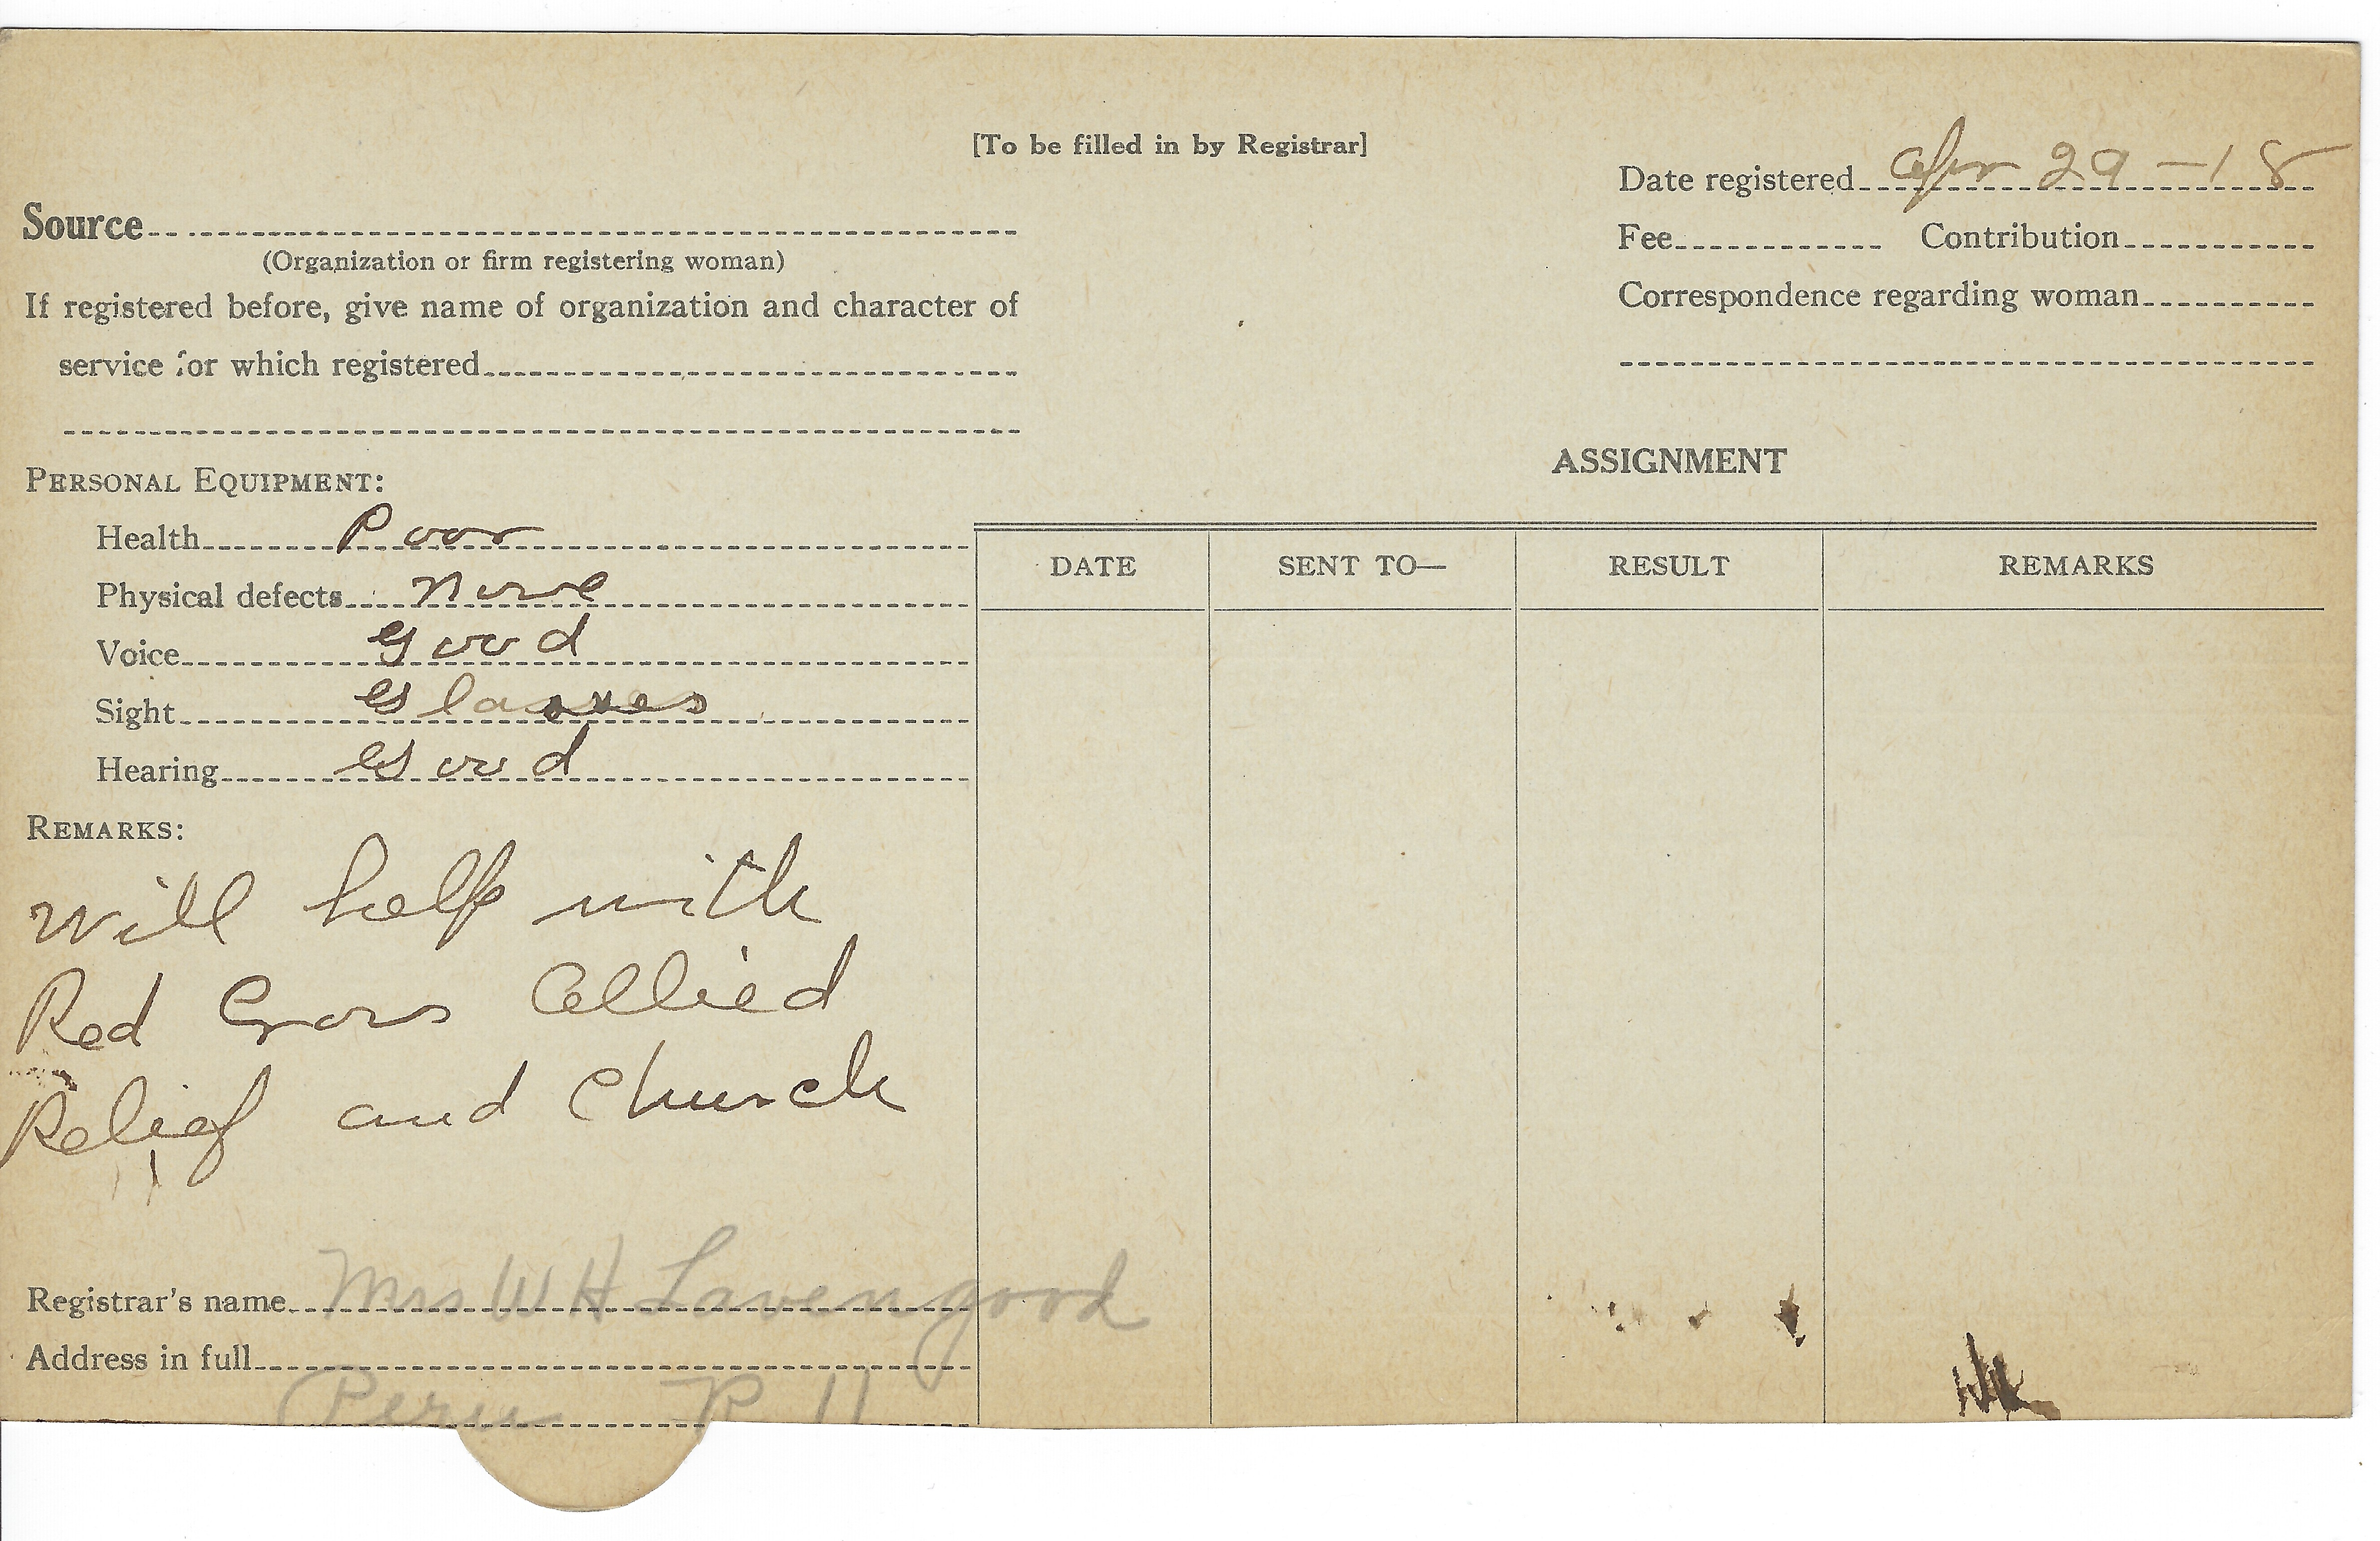 [To be filled in by Registrar]
Date registered Apr 29-18
Source
(Organization or firm registering woman)
Fee Contribution
If registered before, give name of organization and character of
service for which registered
Correspondence regarding woman
ASSIGNMENT
PERSONAL EQUIPMENT:
Health Poor
Physical defects None
Voice Good
Sight Glasses
Hearing Good
DATE SENT TO— RESULT REMARKS
REMARKS:
Will help with
Red Cross Allied
Relief and Church
Registrar's name Mrs W H Lavengood
Address in full
Peru R 11